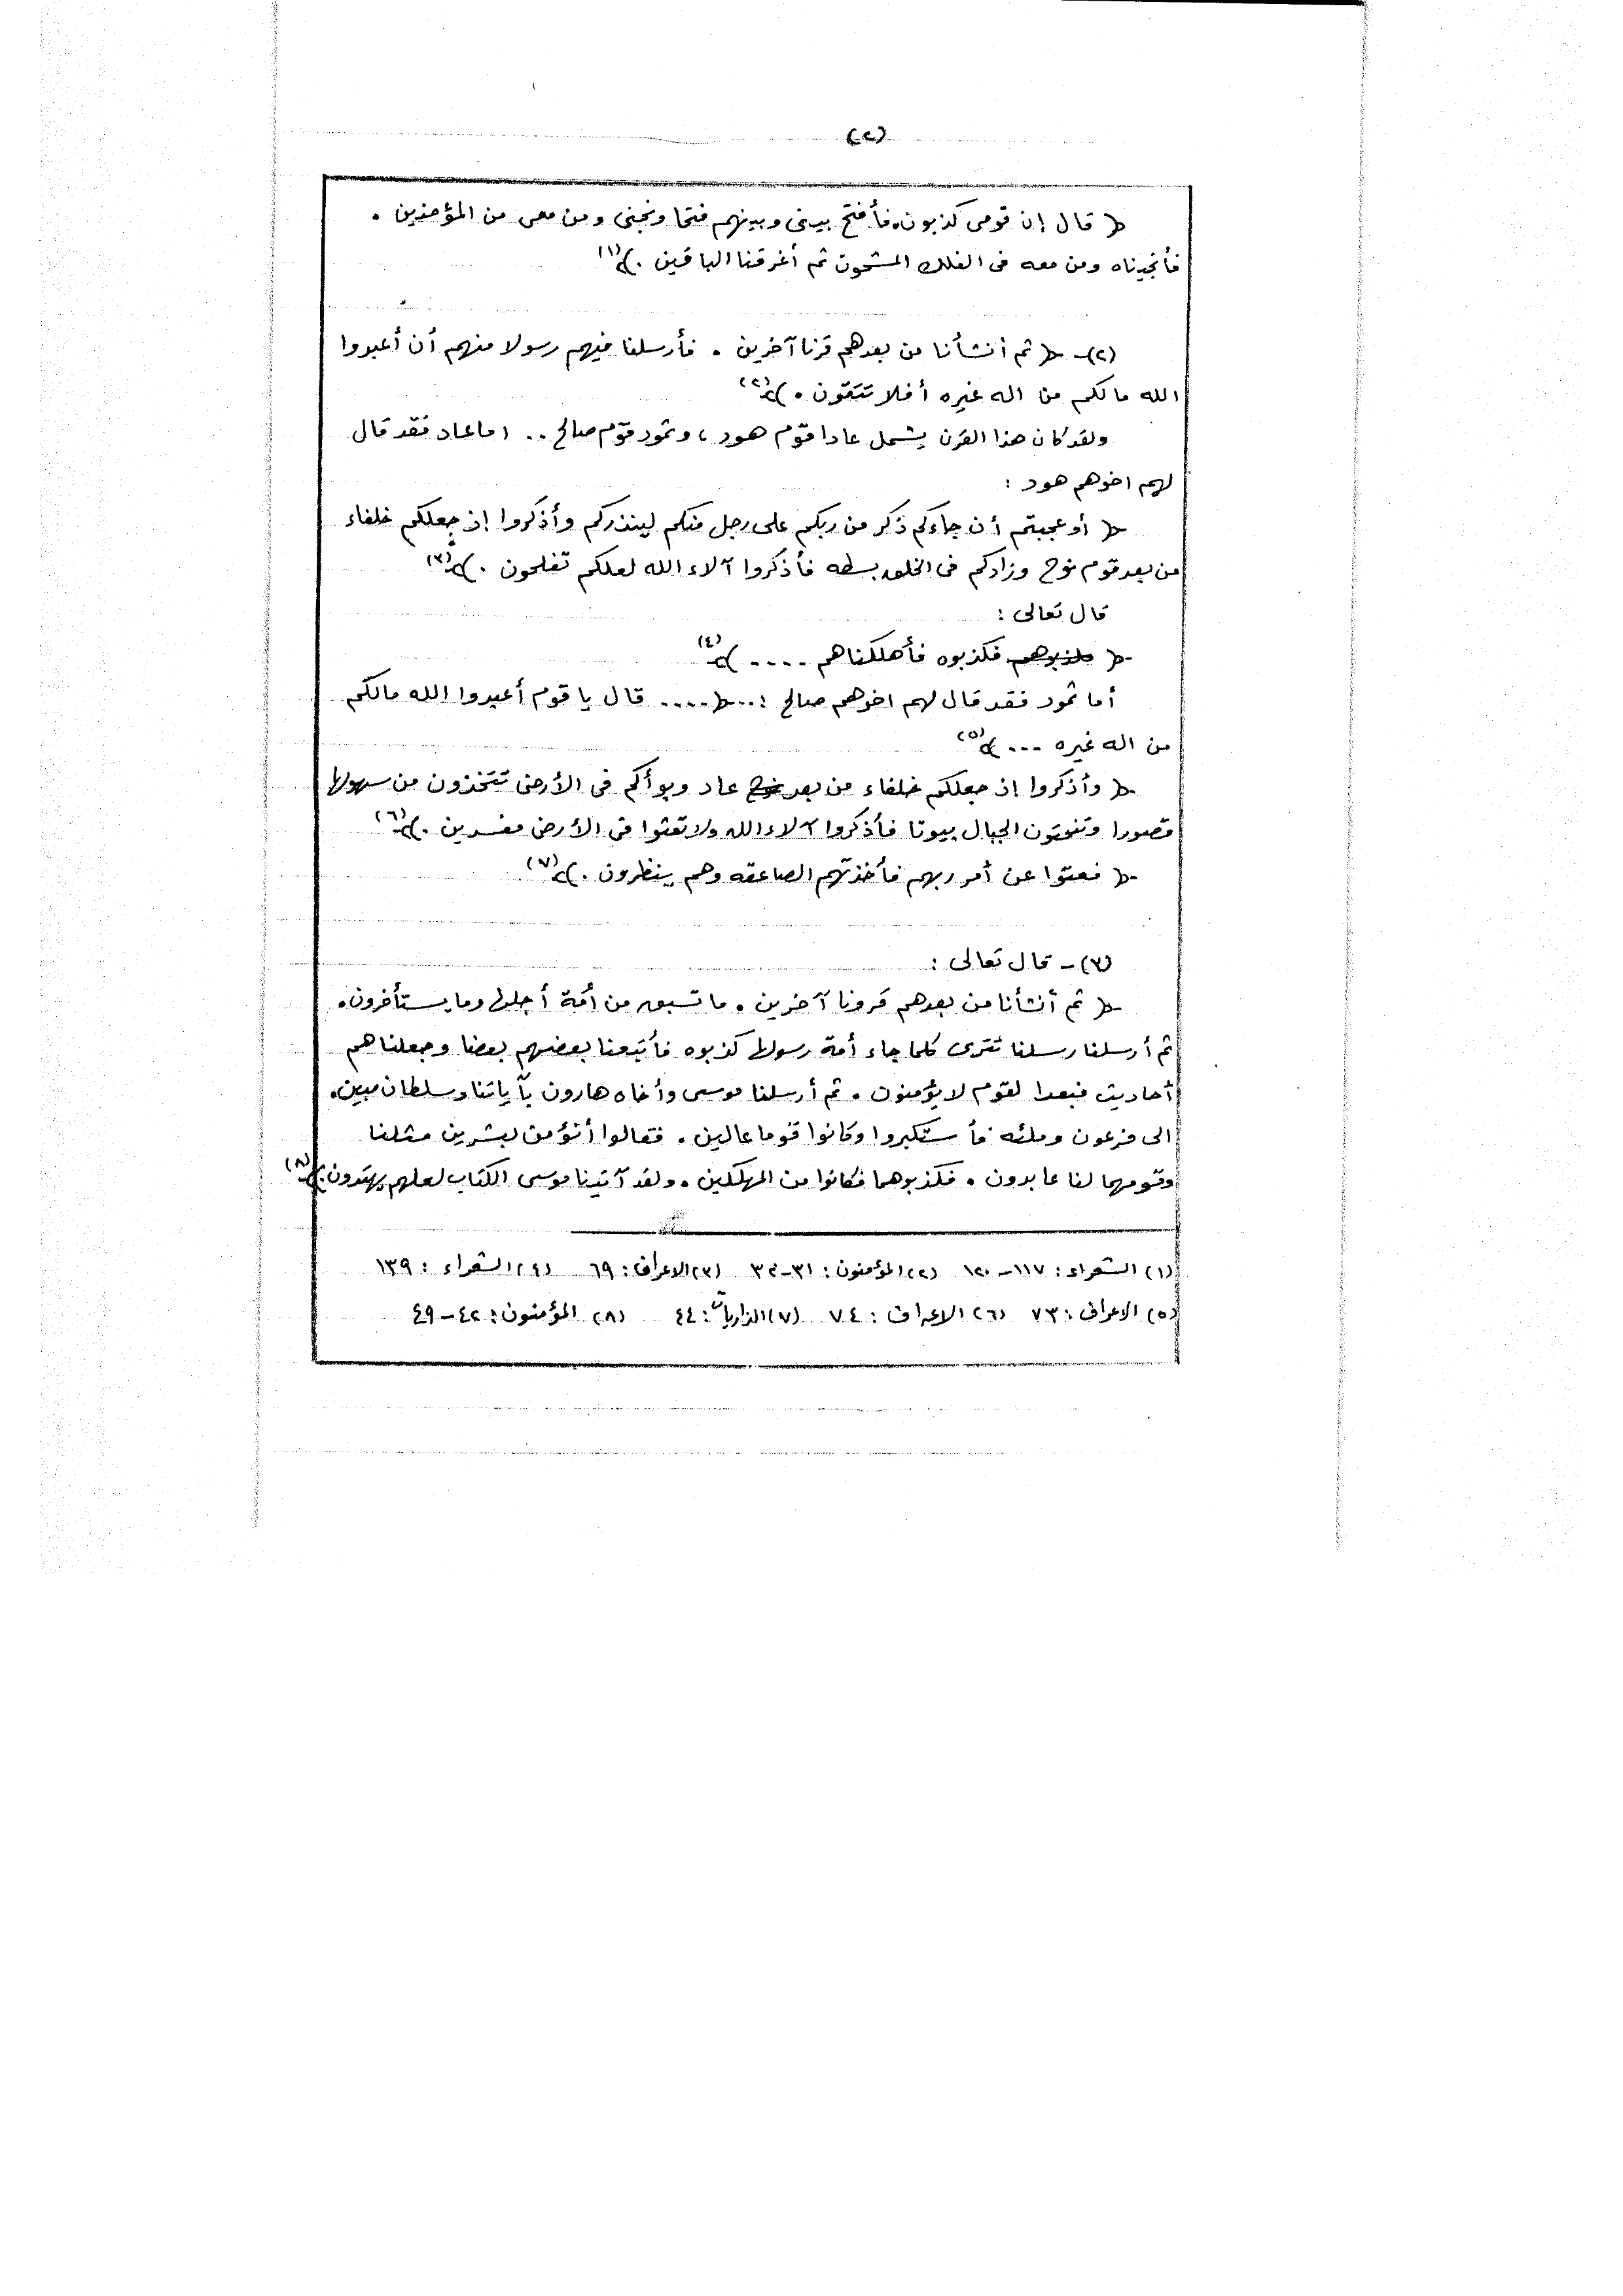 (٢)
﴿ قال إن قومى كذبون. فأفتح بينى وبينهم فتحا ونجنى ومن معى من المؤمنين .
فأنجيناه ومن معه فى الفلك المشحون ثم أغرقنا الباقين . ﴾(١)
(٢)- ﴿ ثم أنشأنا من بعدهم قرنا آخرين . فأرسلنا فيهم رسولا منهم أن أعبدوا
الله مالكم من اله غيره أفلا تتقون . ﴾(٢)
ولقد كان هذا القرن يشمل عادا قوم هود ، وثمود قوم صالح .. اما عاد فقد قال
لهم اخوهم هود :
﴿ أوعجبتم أن جاءكم ذكر من ربكم على رجل منكم لينذركم وأذكروا إذ جعلكم خلفاء
من بعد قوم نوح وزادكم فى الخلق بسطه فأذكروا آلاء الله لعلكم تفلحون . ﴾(٣)
قال تعالى :
﴿ فكذبوه فأهلكناهم .... ﴾(٤)
أما ثمود فقد قال لهم اخوهم صالح : .. ﴿ .... قال يا قوم أعبدوا الله مالكم
من اله غيره ... ﴾(٥)
﴿ وأذكروا إذ جعلكم خلفاء من بعد عاد وبوأكم فى الأرض تتخذون من سهولها
قصورا وتنحتون الجبال بيوتا فأذكروا آلاء الله ولا تعثوا فى الأرض مفسدين . ﴾(٦)
﴿ فعتوا عن أمر ربهم فأخذتهم الصاعقه وهم ينظرون . ﴾(٧)
(٣)- قال تعالى :
﴿ ثم أنشأنا من بعدهم قرونا آخرين . ما تسبق من أمة أجلها وما يستأخرون .
ثم أرسلنا رسلنا تترى كلما جاء أمة رسولها كذبوه فأتبعنا بعضهم بعضا وجعلناهم
أحاديث فبعدا لقوم لا يؤمنون . ثم أرسلنا موسى وأخاه هارون بآياتنا وسلطان مبين .
الى فرعون وملئه فأستكبروا وكانوا قوما عالين . فقالوا أنؤمن لبشرين مثلنا
وقومهما لنا عابدون . فكذبوهما فكانوا من المهلكين . ولقد آتينا موسى الكتاب لعلهم يهتدون . ﴾(٨)
(١) الشعراء : ١١٧-١٢٠ (٢) المؤمنون : ٣١-٣٢ (٣) الاعراف : ٦٩ (٤) الشعراء : ١٣٩
(٥) الاعراف : ٧٣ (٦) الاعراف : ٧٤ (٧) الذاريات : ٤٤ (٨) المؤمنون : ٤٢-٤٩